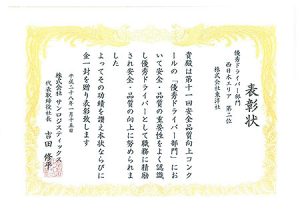 表彰状
優秀ドライバー部門
西日本エリア 第二位
株式会社東洋社
貴殿は第十一回安全品質向上コンク
ールの「優秀ドライバー部門」にお
いて安全・品質の重要性をよく認識
し優秀ドライバーとして職務に精励
され安全・品質の向上に努められま
した
よってその功績を讃え本状ならびに
金一封を贈り表彰致します
平成二十八年一月十五日
株式会社サンロジスティックス
代表取締役社長
吉田 修平